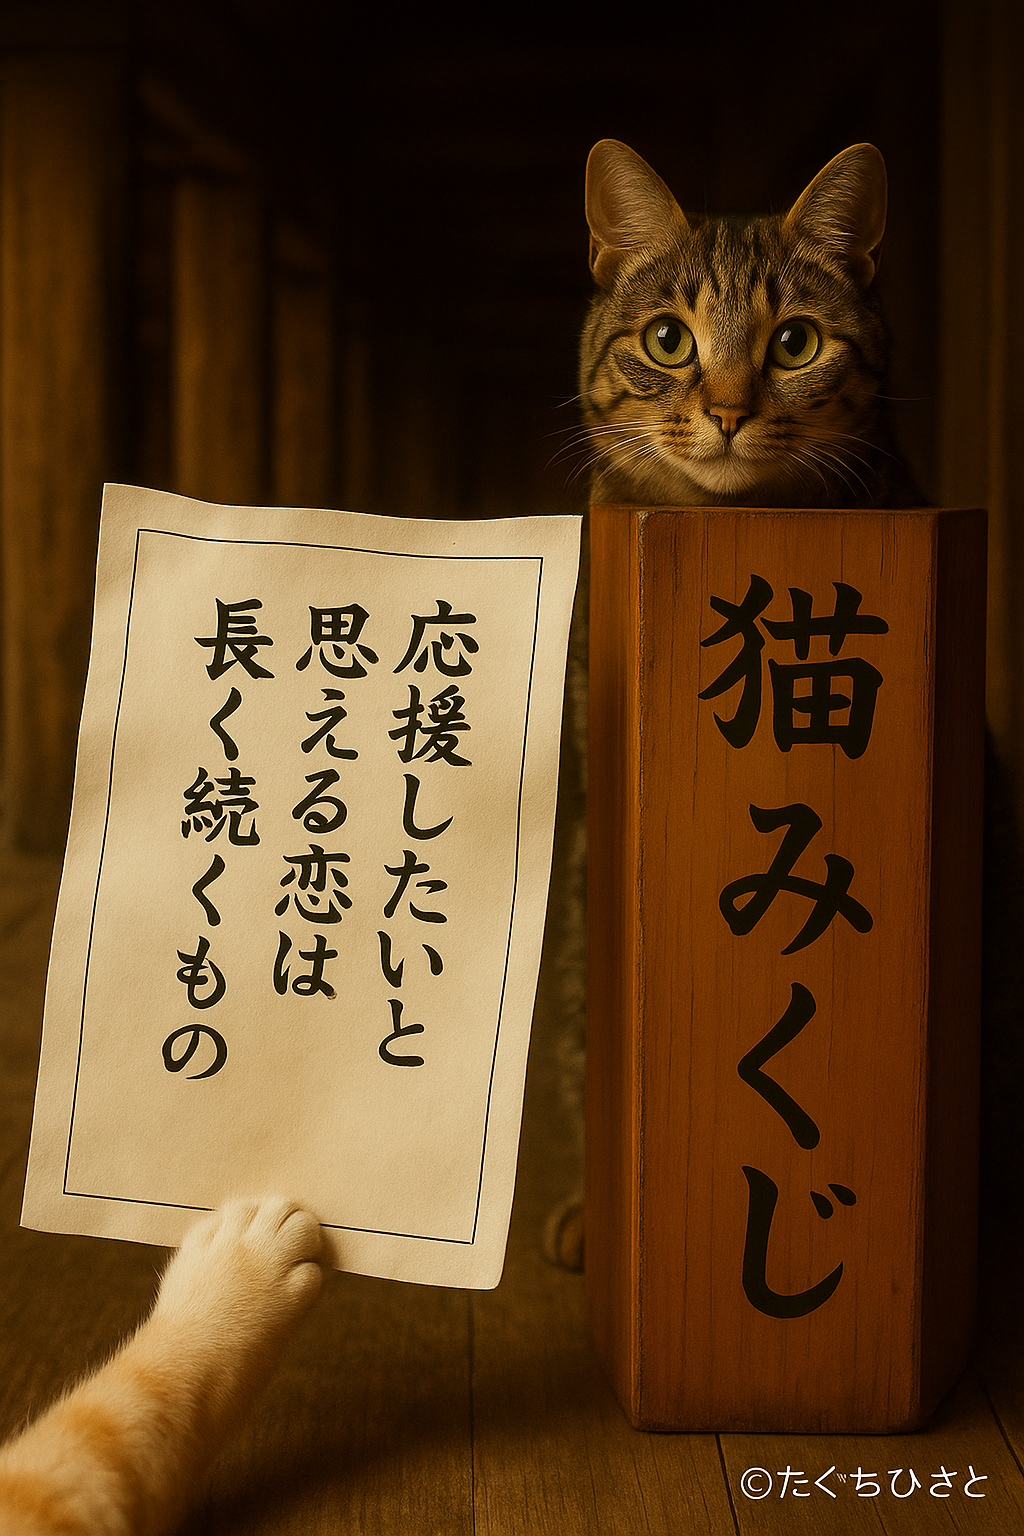 応援したいと
思える恋は
長く続くもの
猫みくじ
©たぐちひさと